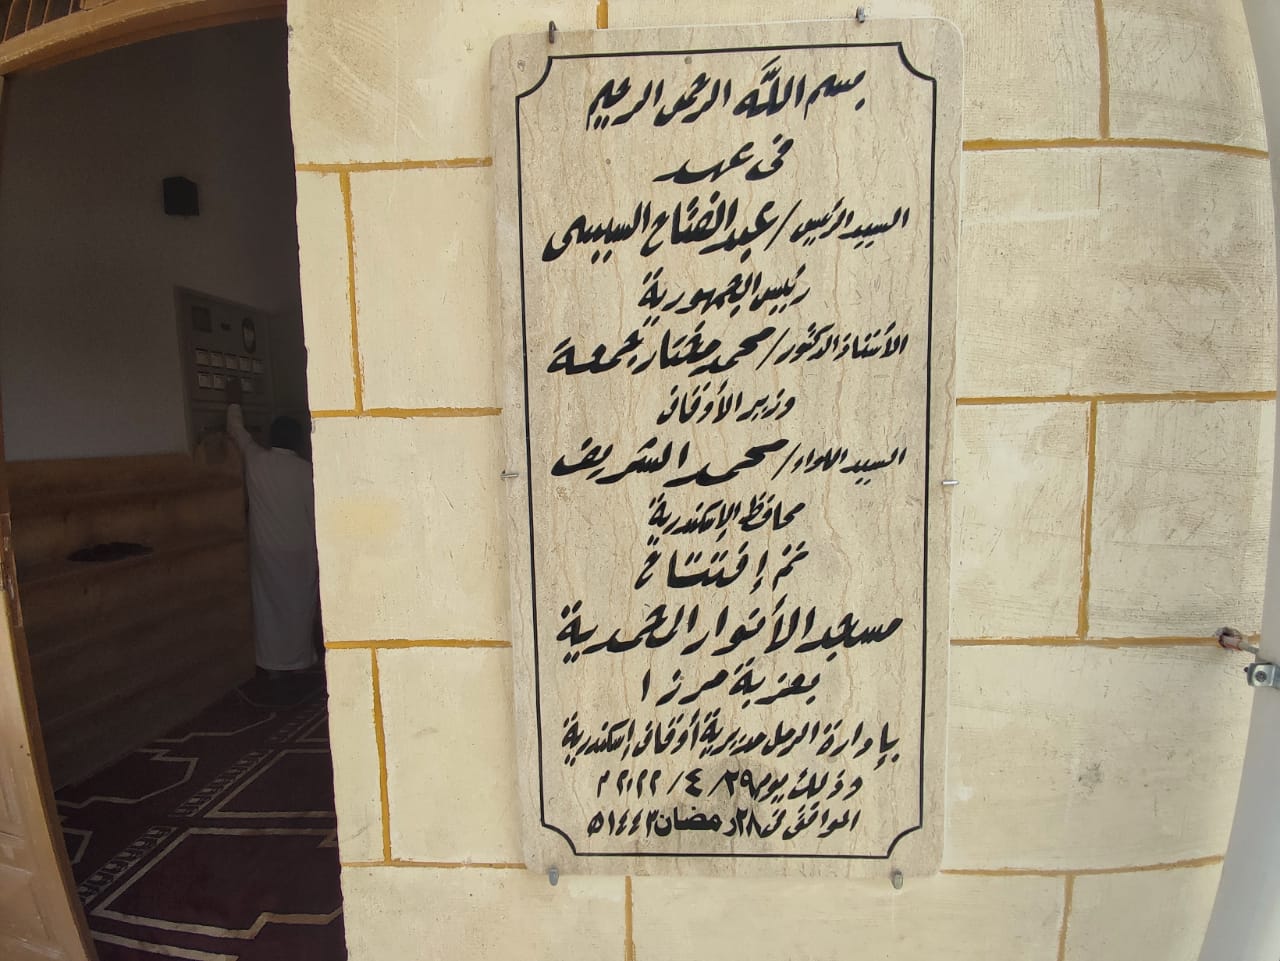 بسم اللَّه الرحمن الرحيم
فى عهد
السيد الرئيس / عبد الفتاح السيسى
رئيس الجمهورية
الأستاذ الدكتور / محمد مختار جمعة
وزير الأوقاف
السيد اللواء / محمد الشريف
محافظ الإسكندرية
تم إفتتاح
مسجد الأنوار المحمدية
بعزبة مرزا
بإدارة الرمل مديرية أوقاف إسكندرية
وذلك يوم ٢٩ / ٤ / ٢٠٢٢ م
الموافق فى ٢٨ رمضان ١٤٤٣ ه